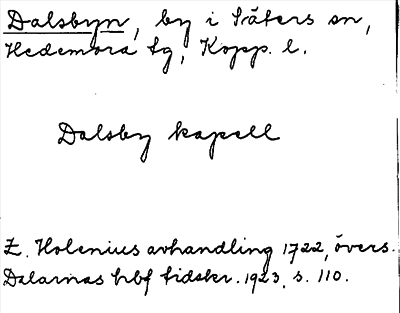 Dalsbyn, by i Säters sn,
Hedemora tg, Kopp. l.
Dalsby kapell
E. Holenius avhandling 1722, övers.
Dalarnas hbf tidskr. 1923, s. 110.